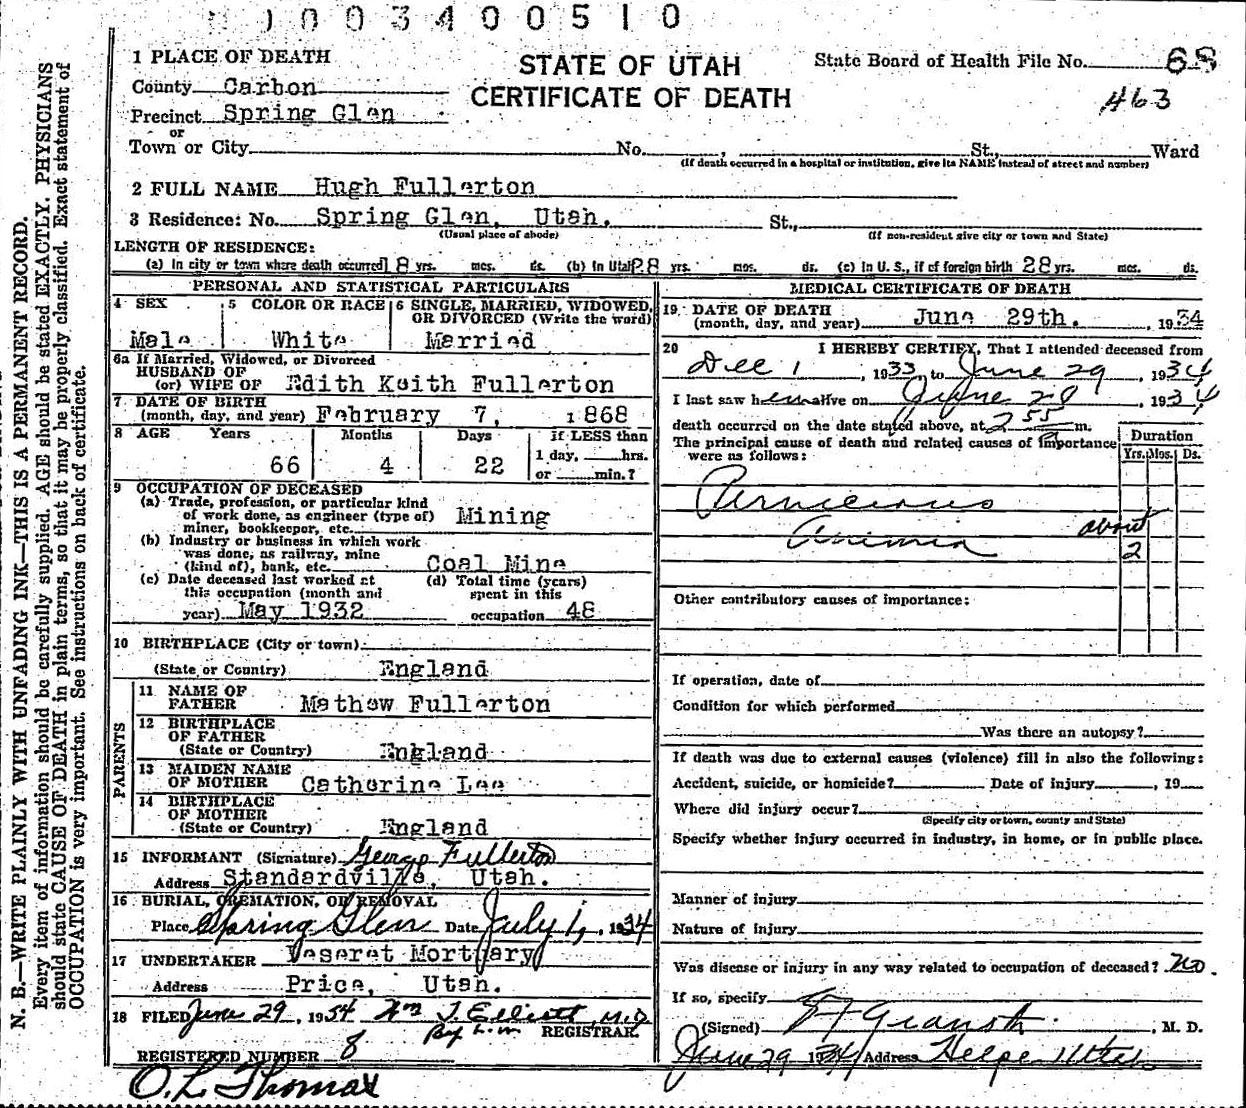 1003400510
1 PLACE OF DEATH
STATE OF UTAH
CERTIFICATE OF DEATH
State Board of Health File No. 68
463
County Carbon
Precinct Spring Glen
or
Town or City No. , St., Ward
(If death occurred in a hospital or institution, give its NAME instead of street and number)
2 FULL NAME Hugh Fullerton
3 Residence: No. Spring Glen, Utah. St.,
(Usual place of abode) (If non-resident give city or town and State)
LENGTH OF RESIDENCE:
(a) In city or town where death occurred 18 yrs. mos. ds. (b) In Utah 28 yrs. mos. ds. (c) In U. S., if of foreign birth 28 yrs. mos. ds.
PERSONAL AND STATISTICAL PARTICULARS
4 SEX
Male
5 COLOR OR RACE
White
6 SINGLE, MARRIED, WIDOWED,
OR DIVORCED (Write the word)
Married
6a If Married, Widowed, or Divorced
HUSBAND OF
(or) WIFE OF Edith Keith Fullerton
7 DATE OF BIRTH
(month, day, and year) February 7, 1868
8 AGE Years Months Days If LESS than
1 day, hrs.
66 4 22 or min.?
9 OCCUPATION OF DECEASED
(a) Trade, profession, or particular kind
of work done, as engineer (type of)
miner, bookkeeper, etc. Mining
(b) Industry or business in which work
was done, as railway, mine
(kind of), bank, etc. Coal Mine
(c) Date deceased last worked at
this occupation (month and
year) May 1932
(d) Total time (years)
spent in this
occupation 48
10 BIRTHPLACE (City or town)
(State or Country) England
PARENTS
11 NAME OF
FATHER Mathow Fullerton
12 BIRTHPLACE
OF FATHER
(State or Country) England
13 MAIDEN NAME
OF MOTHER Catherine Lee
14 BIRTHPLACE
OF MOTHER
(State or Country) England
15 INFORMANT (Signature) George Fullerton
Address Standardville, Utah.
16 BURIAL, CREMATION, OR REMOVAL
Place Spring Glen Date July 1, 1934
17 UNDERTAKER Deseret Mortuary
Address Price, Utah.
18 FILED June 29, 1934 Wm J. Elliott, M.D.
By L.M. REGISTRAR.
REGISTERED NUMBER 8
O. L. Thomas
MEDICAL CERTIFICATE OF DEATH
19 DATE OF DEATH
(month, day, and year) June 29th. , 1934
20 I HEREBY CERTIFY, That I attended deceased from
Dec 1 , 1933, to June 29 , 1934
I last saw h em alive on June 29 , 1934
death occurred on the date stated above, at 2 55 P m.
The principal cause of death and related causes of importance
were as follows:
Duration
Yrs. Mos. Ds.
Pernicious
Anemia about
2
Other contributory causes of importance:
If operation, date of
Condition for which performed
Was there an autopsy?
If death was due to external causes (violence) fill in also the following:
Accident, suicide, or homicide? Date of injury , 19
Where did injury occur?
(Specify city or town, county and State)
Specify whether injury occurred in industry, in home, or in public place.
Manner of injury
Nature of injury
Was disease or injury in any way related to occupation of deceased? No.
If so, specify
(Signed) , M. D.
June 29 1934 Address Helper Utah
N. B.—WRITE PLAINLY WITH UNFADING INK—THIS IS A PERMANENT RECORD.
Every item of information should be carefully supplied. AGE should be stated EXACTLY. PHYSICIANS
should state CAUSE OF DEATH in plain terms, so that it may be properly classified. Exact statement of
OCCUPATION is very important. See instructions on back of certificate.